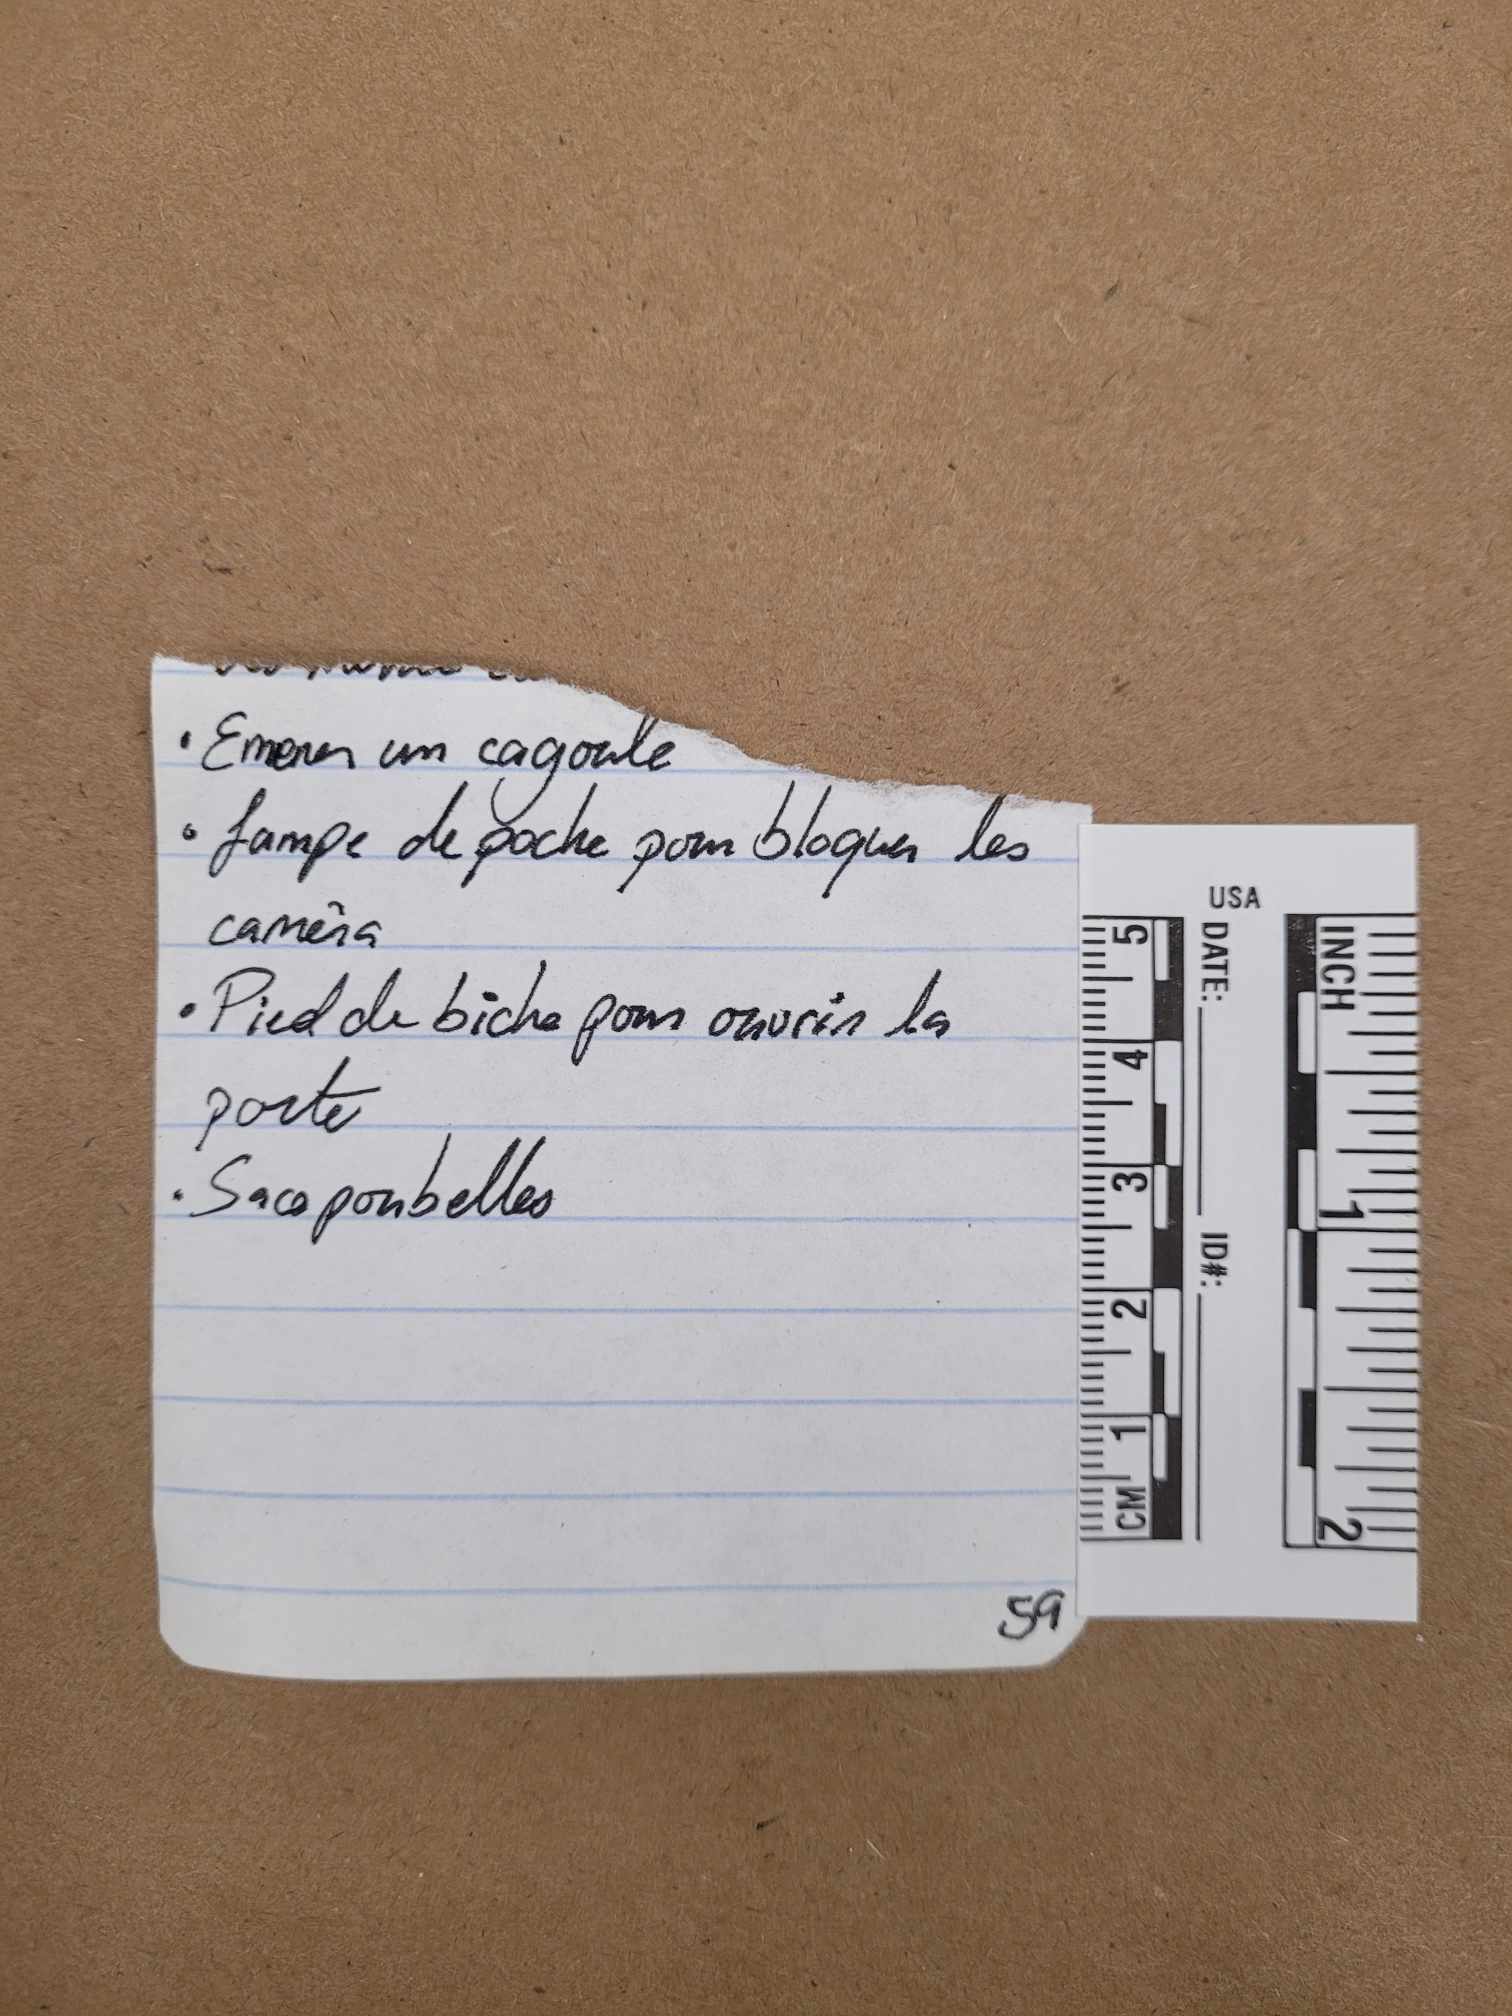 • Emener un cagoule
• Lampe de poche pour bloquer les
caméra
• Pied de biche pour ouvrir la
porte
• Sacs poubelles
59
USA
INCH
1
2
DATE:
ID#:
5
4
3
2
1
CM